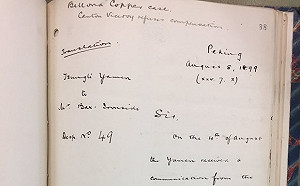 Bellona Copper case.
Canton Viceroy refuses compensation
98
Translation.
Peking
August 8, 1899
(xxv. 7. x)
Tsungli Yamen
to
Mr Bax-Ironside
Sir,
Desp. No 49
On the 10th of August
the Yamen received a
communication from the